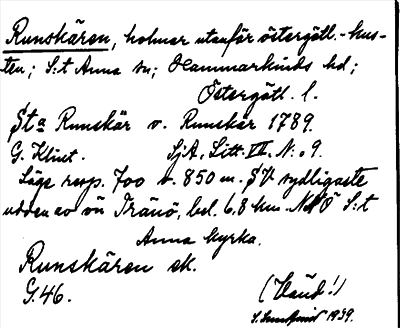 Runskären, holmar utanför östergötl.-kus-
ten; S:t Anna sn; Hammarkinds hd;
Östergötl. l.
Sta Runskär o. Runskär 1789.
G. Klint. SjA, Litt. VII. N:o 9.
Läge resp. 700 o. 850 m. SV sydligaste
udden av ön Tränö, bel. 6,8 km NNÖ S:t
Anna kyrka.
Runskären ek.
G. 46. (Vänd!)
1939.